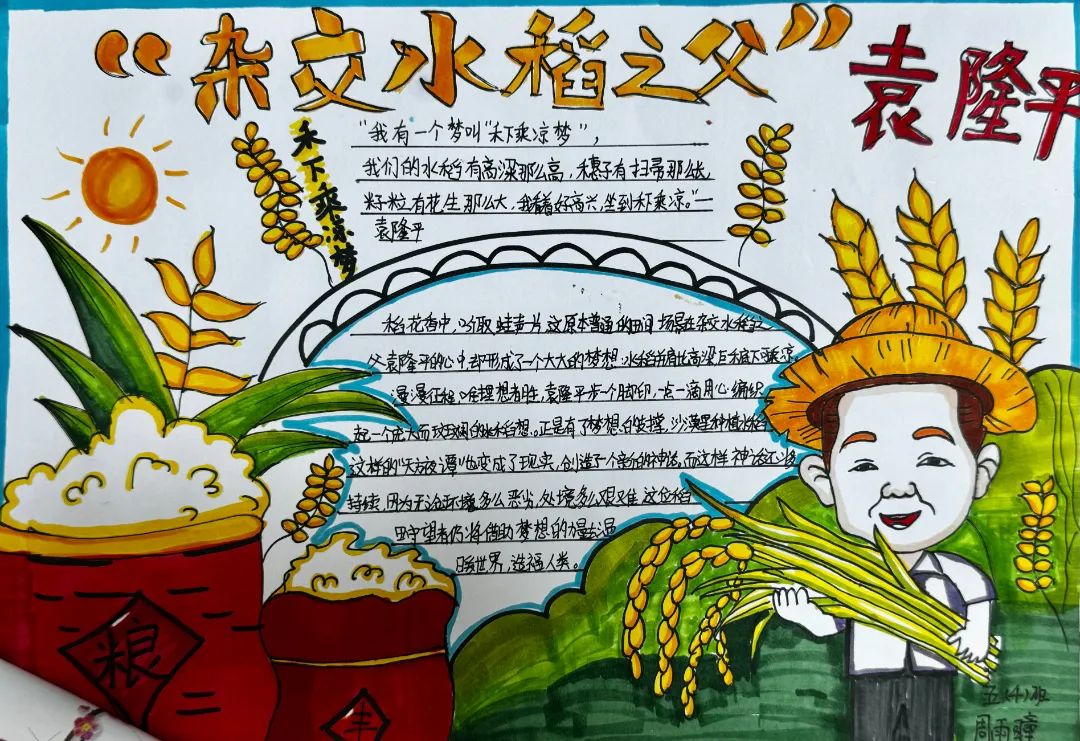 “杂交水稻之父”
袁隆平
禾下乘凉梦
“我有一个梦叫“禾下乘凉梦”，
我们的水稻有高粱那么高，穗子有扫帚那么长
籽粒有花生那么大，我看着好高兴，坐到禾下乘凉。”一
袁隆平
稻花香中，听取蛙声一片这原本普通的田间场景在杂交水稻之
父袁隆平的心中，却形成了一个大大的梦想：水稻前肩比高粱巨禾底下乘凉
漫漫征程，唯理想者胜，袁隆平步一个脚印，一点一滴用心编织
起一个宏大而斑斓的水稻梦想。正是有了梦想的支撑，沙漠里种植水稻
这样的“天方夜谭”也变成了现实，创造了一个新的神话，而这样神话还将
持续，因为无论环境多么恶劣，处境多么艰难 这位稻
田守望者仍将借助梦想的力量去温
暖世界，造福人类。
粮
丰
五（4）班
周雨瞳